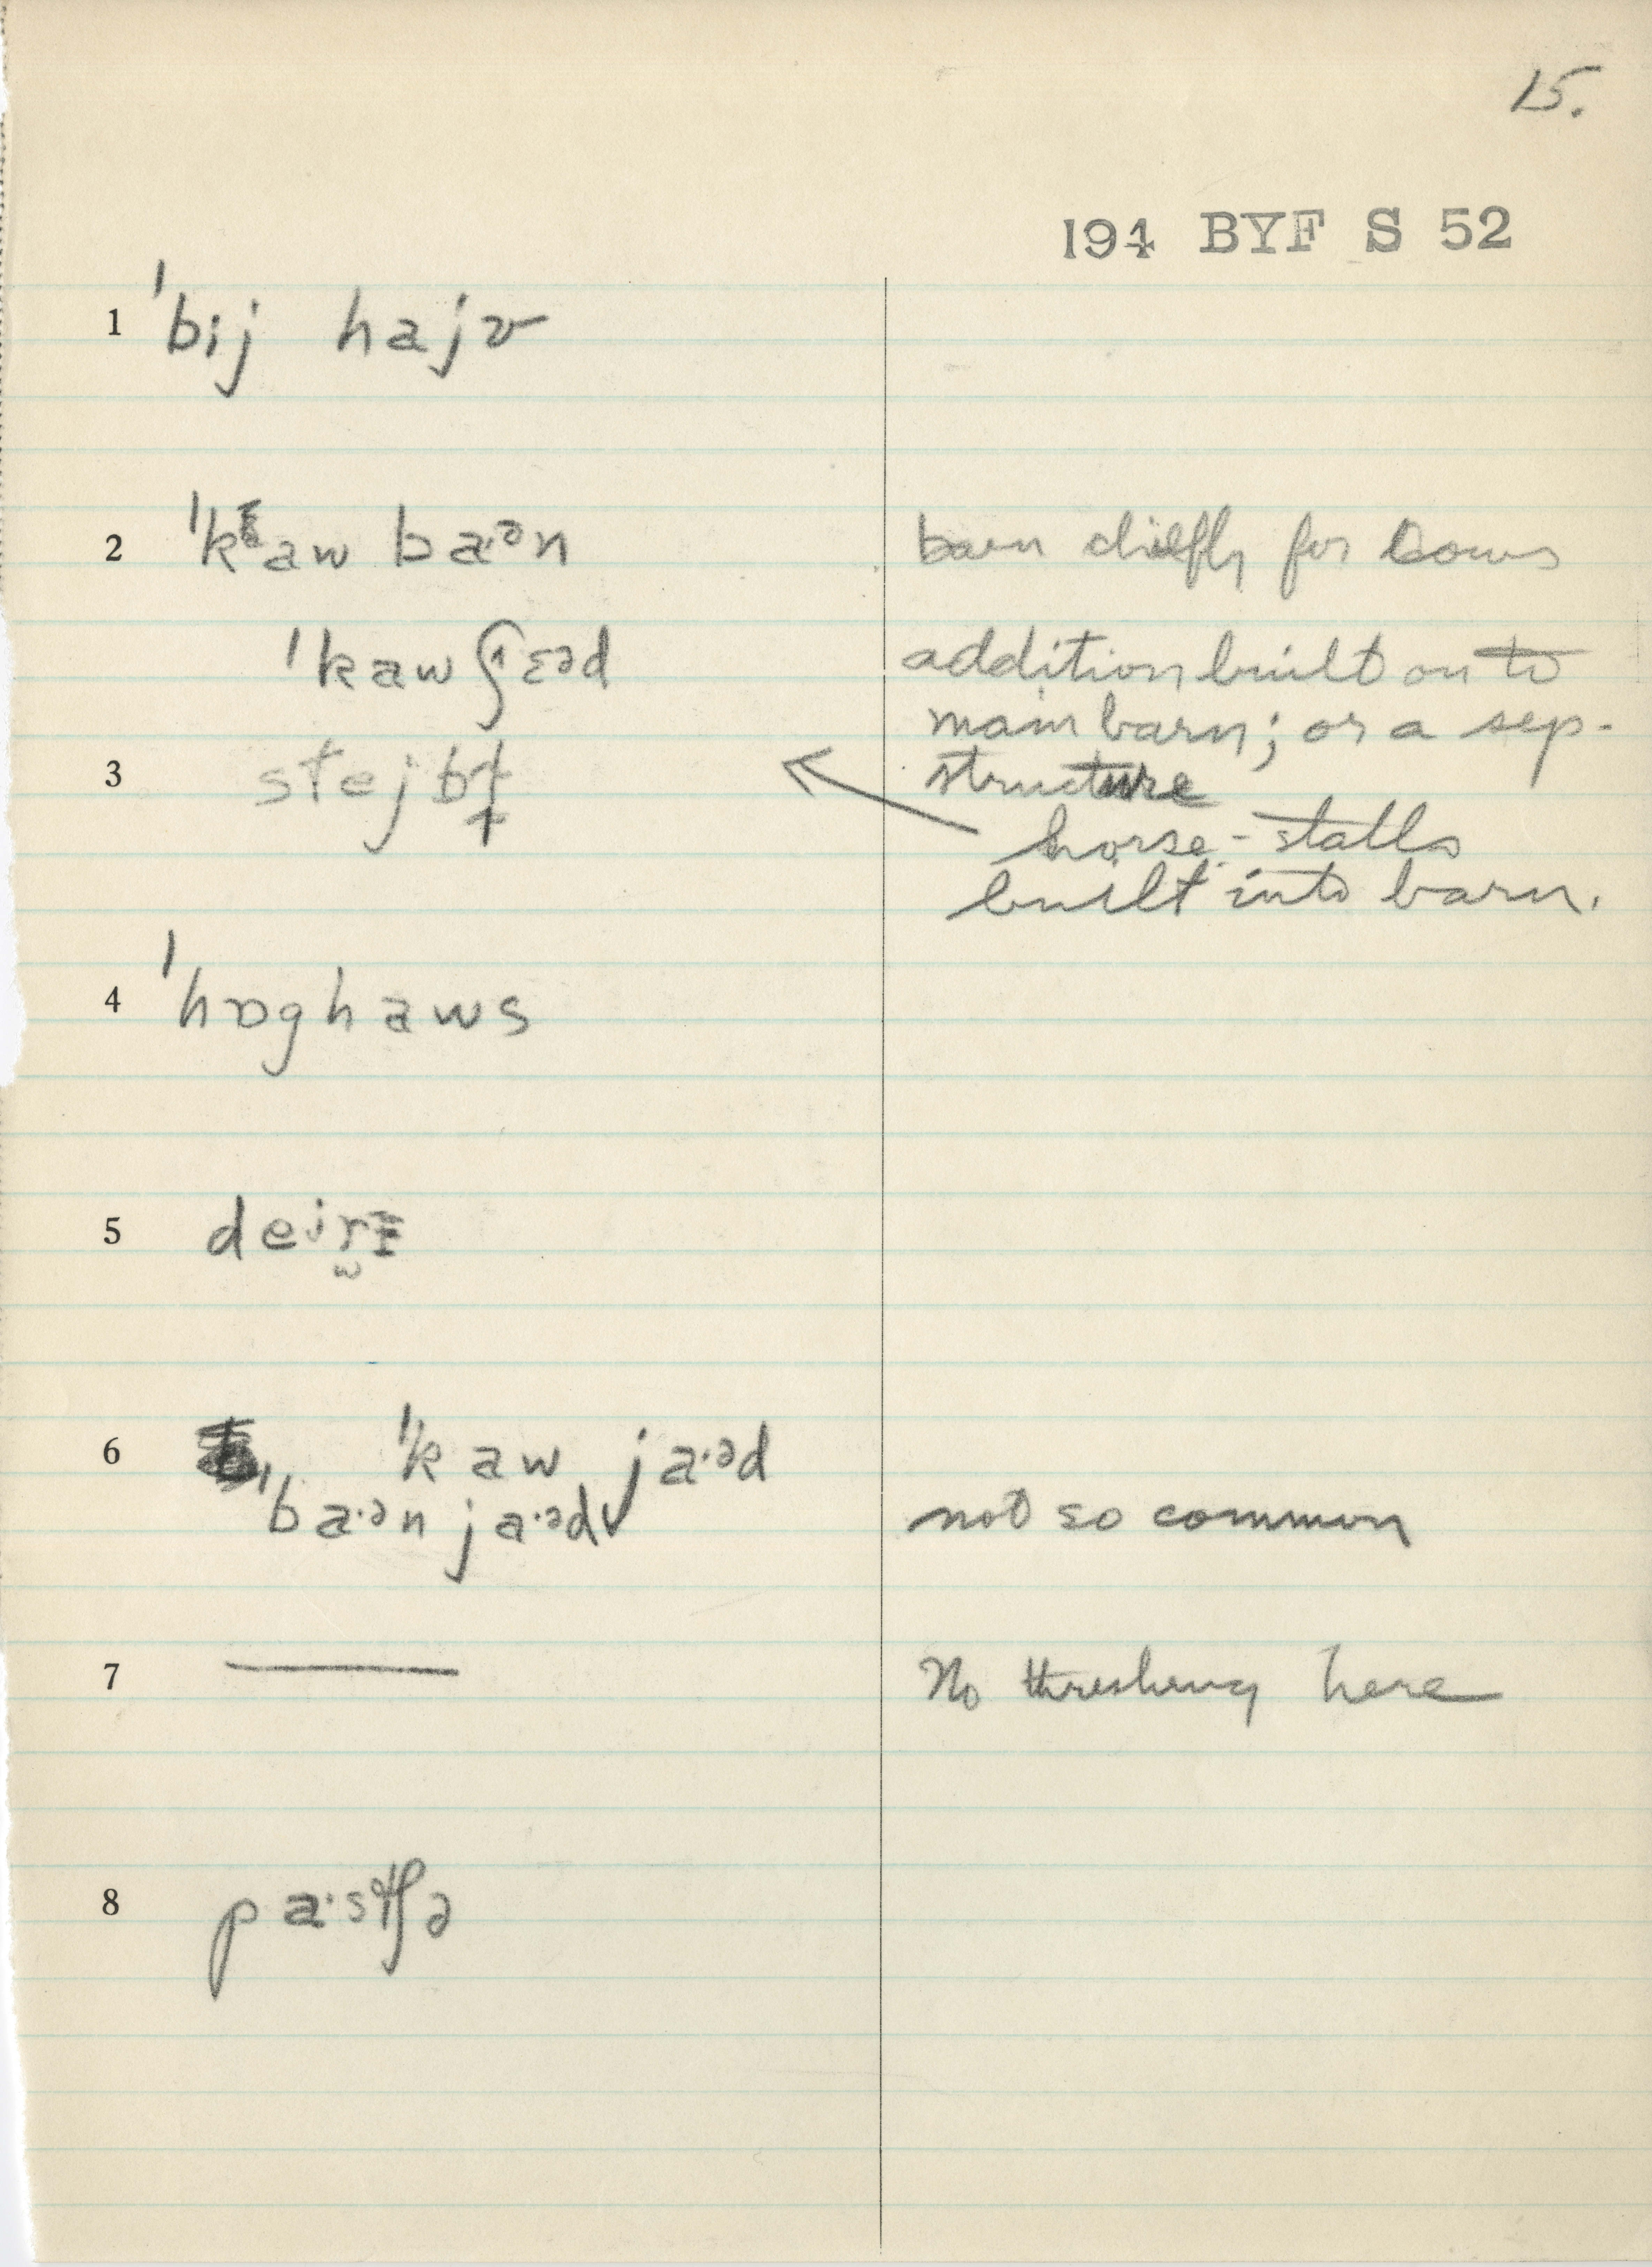 15.
194 BYF S 52
1 ˈbij hajv
2 ˈkaw ba·ᵊn barn chiefly for cows
ˈkaw ʃɛəd addition built on to
main barn; or a sep.
3 stejbɫ̩ structure
horse-stalls
built into barn.
4 ˈhɒghaws
5 deⁱrɪ
6 ˈkaw ja·ᵊd
ˈba·ᵊn ja·ᵊd✓ not so common
7 —— No threshing here
8 pa·stʃə